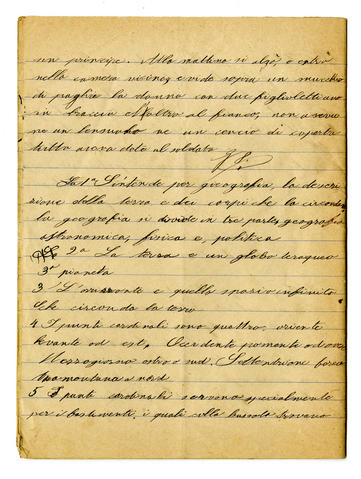 un principe. Alla mattina si alzò, e entrò
nella camera vicina, e vide sopra un mucchio
di paglia la donna con due figlioletti uno
in braccio l'altro al fianco, non aveva
ne un lensuolo ne un cencio di coperta
tutto aveva dato al soldato
La 1ª S'intende per geografia, la descri
zione della terra e dei corpi che la circonda
la geografia si divide in tre parte, geografia
astronomica, fisica e, politica
2ª La terra e un globo teraqueo
3ª pianeta
3 L'orizzonte e quello spazio infinito
che circonda la terra
4 I punti cardinali sono quattro, oriente
levante od est, Occidente ponente od ovest
Mezzogiorno ostro o sud, Settentrione borea
tramontana o nord
5 I punti cardinali servono specialmente
per i bastimenti, i quali colla bussola trovano